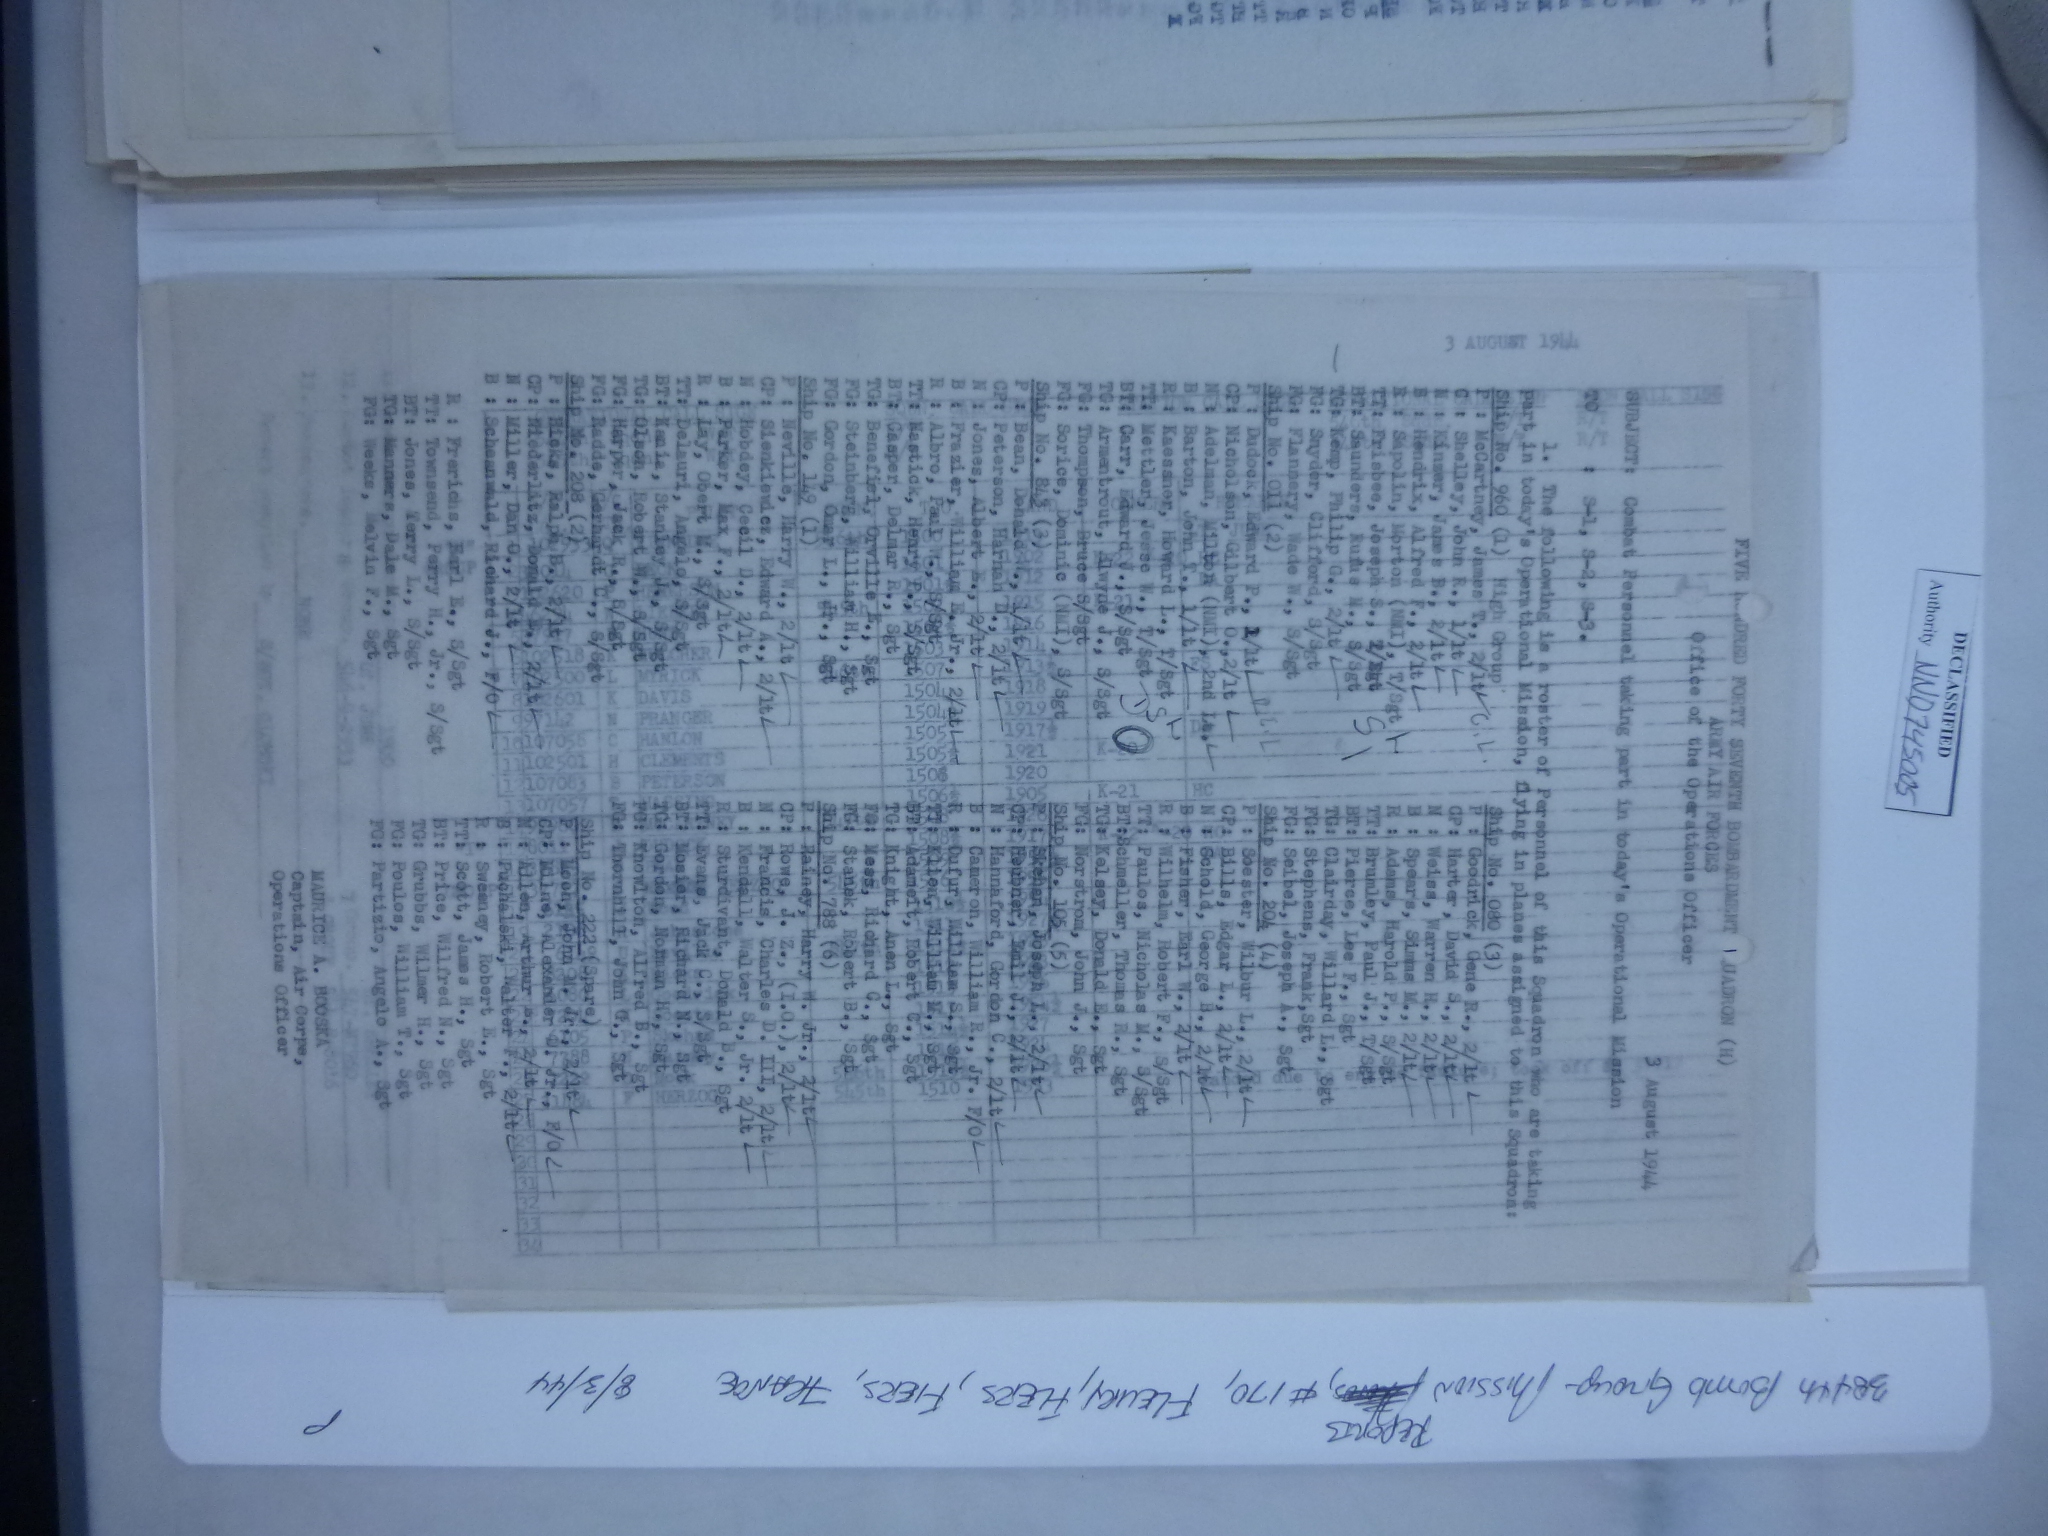 DECLASSIFIED
Authority NND745005
3 AUGUST 1944
FIVE HUNDRED FORTY SEVENTH BOMBARDMENT SQUADRON (H)
ARMY AIR FORCES
Office of the Operations Officer
3 August 1944
SUBJECT: Combat Personnel taking part in today's Operational Mission
TO : S-1, S-2, S-3.
1. The following is a roster of Personnel of this Squadron who are taking
part in today's Operational Mission, flying in planes assigned to this Squadron:
Ship No. 960 (1) High Group
P : McCartney, James T., 2/lt
C : Shelley, John R., 1/lt
N : Kinser, James B., 2/lt
B : Hendrix, Alfred F., 2/lt
R : Sapolin, Morton (NMI), T/Sgt
TT: Frisbee, Joseph S., T/Sgt
BT: Saunders, Rufus N., S/Sgt
TG: Kemp, Philip G., 2/lt
FG: Snyder, Clifford, S/Sgt
FG: Flannery, Wade W., S/Sgt
Ship No. 011 (2)
P : Dudock, Edward P., 1/lt
CP: Nicholson, Gilbert O., 2/lt
N : Adelman, Milton (NMI), 2nd Lt.
B : Barton, John T., 1/lt
R : Kaessner, Howard L., T/Sgt
TT: Mettler, Jesse W., T/Sgt
BT: Carr, Edward V., S/Sgt
TG: Armentrout, Alwyne J., S/Sgt
FG: Thompson, Bruce S/Sgt
FG: Sorice, Dominic (NMI), S/Sgt
Ship No. 848 (3)
P : Bean, Donald W., 1/lt
CP: Peterson, Harnah D., 2/lt
N : Jones, Albert E., 2/lt
B : Frazier, William E. Jr., 2/lt
R : Albro, Paul W., S/Sgt
TT: Mastick, Henry P., S/Sgt
BT: Gasper, Delmar R., Sgt
TG: Benefiel, Orville E., Sgt
FG: Steinberg, William H., Sgt
FG: Gordon, Omar L., Jr., Sgt
Ship No. 149 (1)
P : Neville, Harry W., 2/lt
CP: Sienkiewicz, Edward A., 2/lt
N : Hobdey, Cecil D., 2/lt
B : Parker, Max F., 2/lt
R : Lay, Obert M., S/Sgt
TT: DeLauri, Angelo, S/Sgt
BT: Kania, Stanley J., S/Sgt
TG: Olson, Robert W., S/Sgt
FG: Harper, Jack R., S/Sgt
FG: Radde, Gerhardt C., S/Sgt
Ship No. 208 (2)
P : Hicks, Ralph B., 2/lt
CP: Niederlitz, Donald L., 2/lt
N : Miller, Dan O., 2/lt
B : Schaanwald, Richard J., F/O
R : Frerichs, Earl E., S/Sgt
TT: Townsend, Perry H., Jr., S/Sgt
BT: Jones, Terry L., S/Sgt
TG: Manners, Dale M., Sgt
FG: Weeks, Melvin F., Sgt
Ship No. 080 (3)
P : Goodrick, Gene R., 2/lt
CP: Harter, David S., 2/lt
N : Weiss, Warren H., 2/lt
B : Spears, Simms M., 2/lt
R : Adams, Harold P., S/Sgt
TT: Brumley, Paul J., T/Sgt
BT: Pierce, Lee F., Sgt
TG: Clairday, Willard L., Sgt
FG: Stephens, Frank, Sgt
FG: Seibel, Joseph A., Sgt
Ship No. 204 (4)
P : Soester, Wilbur L., 2/lt
CP: Bills, Edgar L., 2/lt
N : Gohold, George B., 2/lt
B : Fisher, Earl W., 2/lt
R : Wilhelm, Robert F., S/Sgt
TT: Paulos, Nicholas M., S/Sgt
BT: Schmeller, Thomas R., Sgt
TG: Kelsey, Donald E., Sgt
FG: Norstrom, John J., Sgt
Ship No. 105 (5)
Joseph L., 2/lt
Emil J., 2/lt
N : Hannaford, Gordon C., 2/lt
B : Cameron, William R., Jr. F/O
R : Fulfur, William S., Sgt
William M., Sgt
BT: Adamoit, Robert C., Sgt
TG: Knight, Anen L., Sgt
FG: Mess, Richard G., Sgt
FG: Stanek, Robert B., Sgt
Ship No. 788 (6)
P : Rainey, Harry W. Jr., 2/lt
CP: Rowe, J. Z., (I.O.), 2/lt
N : Francis, Charles D. III, 2/lt
B : Kendall, Walter S., Jr. 2/lt
R : Sturdivant, Donald B., Sgt
TT: Evans, Jack C., S/Sgt
BT: Mosier, Richard N., Sgt
TG: Gordon, Noman H., Sgt
FG: Knowlton, Alfred B., Sgt
FG: Thornhill, John G., Sgt
Ship No. 222 (Spare)
P : Moen, John N. Jr., 2/lt
CP: Milne, Alexander D. Jr., F/O
Arthur 2/lt
B : Puchalski, Walter F., 2/lt
R : Sweeney, Robert E., Sgt
TT: Scott, James H., Sgt
BT: Price, Wilfred N., Sgt
TG: Grubbs, Wilmer H., Sgt
FG: Poulos, William T., Sgt
FG: Partizio, Angelo A., Sgt
MAURICE A. BOOSKA
Captain, Air Corps,
Operations Officer
384th Bomb Group Mission Reports, #170, FLEURY, FLERS, FIERS, FRANCE 8/3/44
P